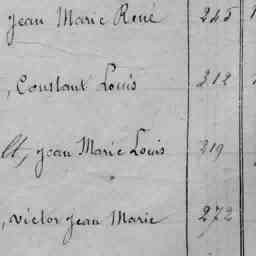 Jean Marie René 245
, Constant Louis 312
lt, Jean Marie Louis 319
, victor Jean Marie 272